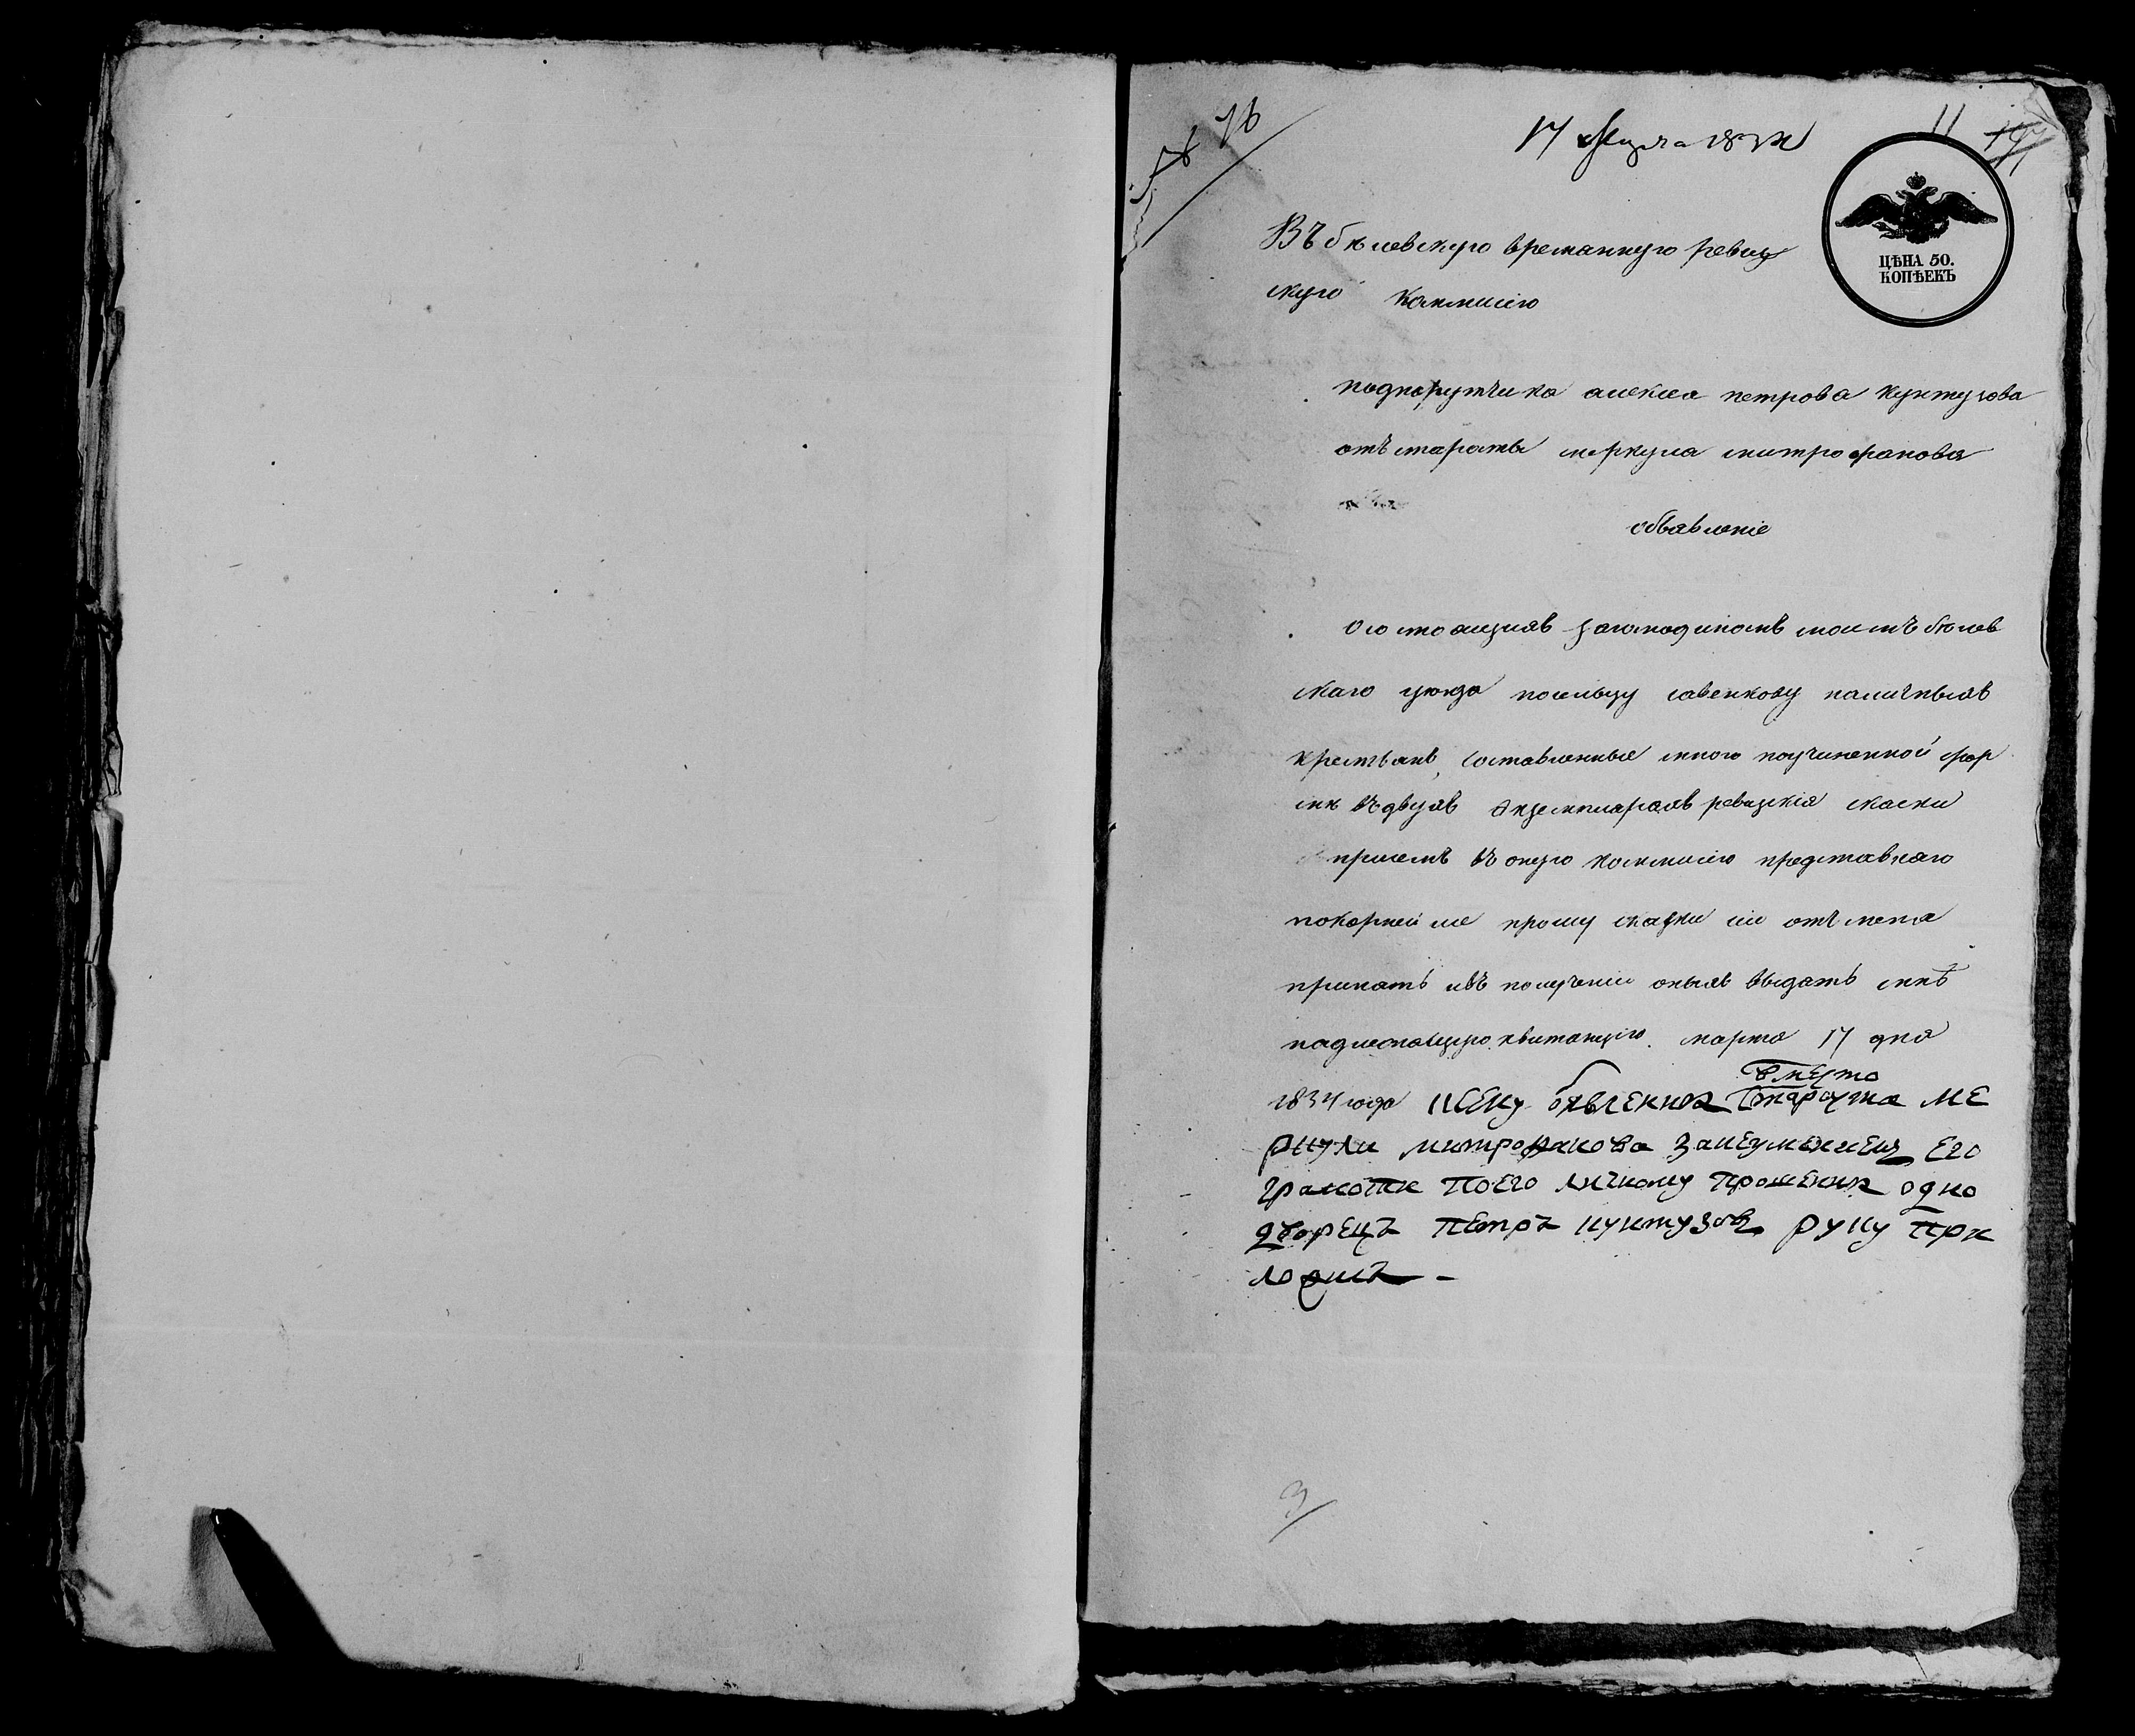 17 Марта 1834
11
ЦѢНА 50.
КОПѢЕКЪ
Въ бѣлевскую временную ревиз
скую Коммисію
подпорутчика алексея петрова куктузова
отъ старосты меркула митрофанова
объявленіе
О состоящихъ загосподиномъ моимъ белев
скаго уезда посельцу савенкову наличныхъ
крестьянъ, составленные мною поучиненной фор
мѣ въ двухъ экземпларахъ ревизскія скаски
присемъ въ оную коммисію представляю
покорнейше прошу скаски сіи отъ меня
принять ивъ получении оныхъ выдать мнѣ
надлежащую квитанцію. марта 17 дня
1834 года ксему обявлению вместо
старосты ме
ркула митрофанова занеумениемъ его
грамоте поего личному прошению одно
дворецъ петръ куктузовъ руку при
ложилъ –
3